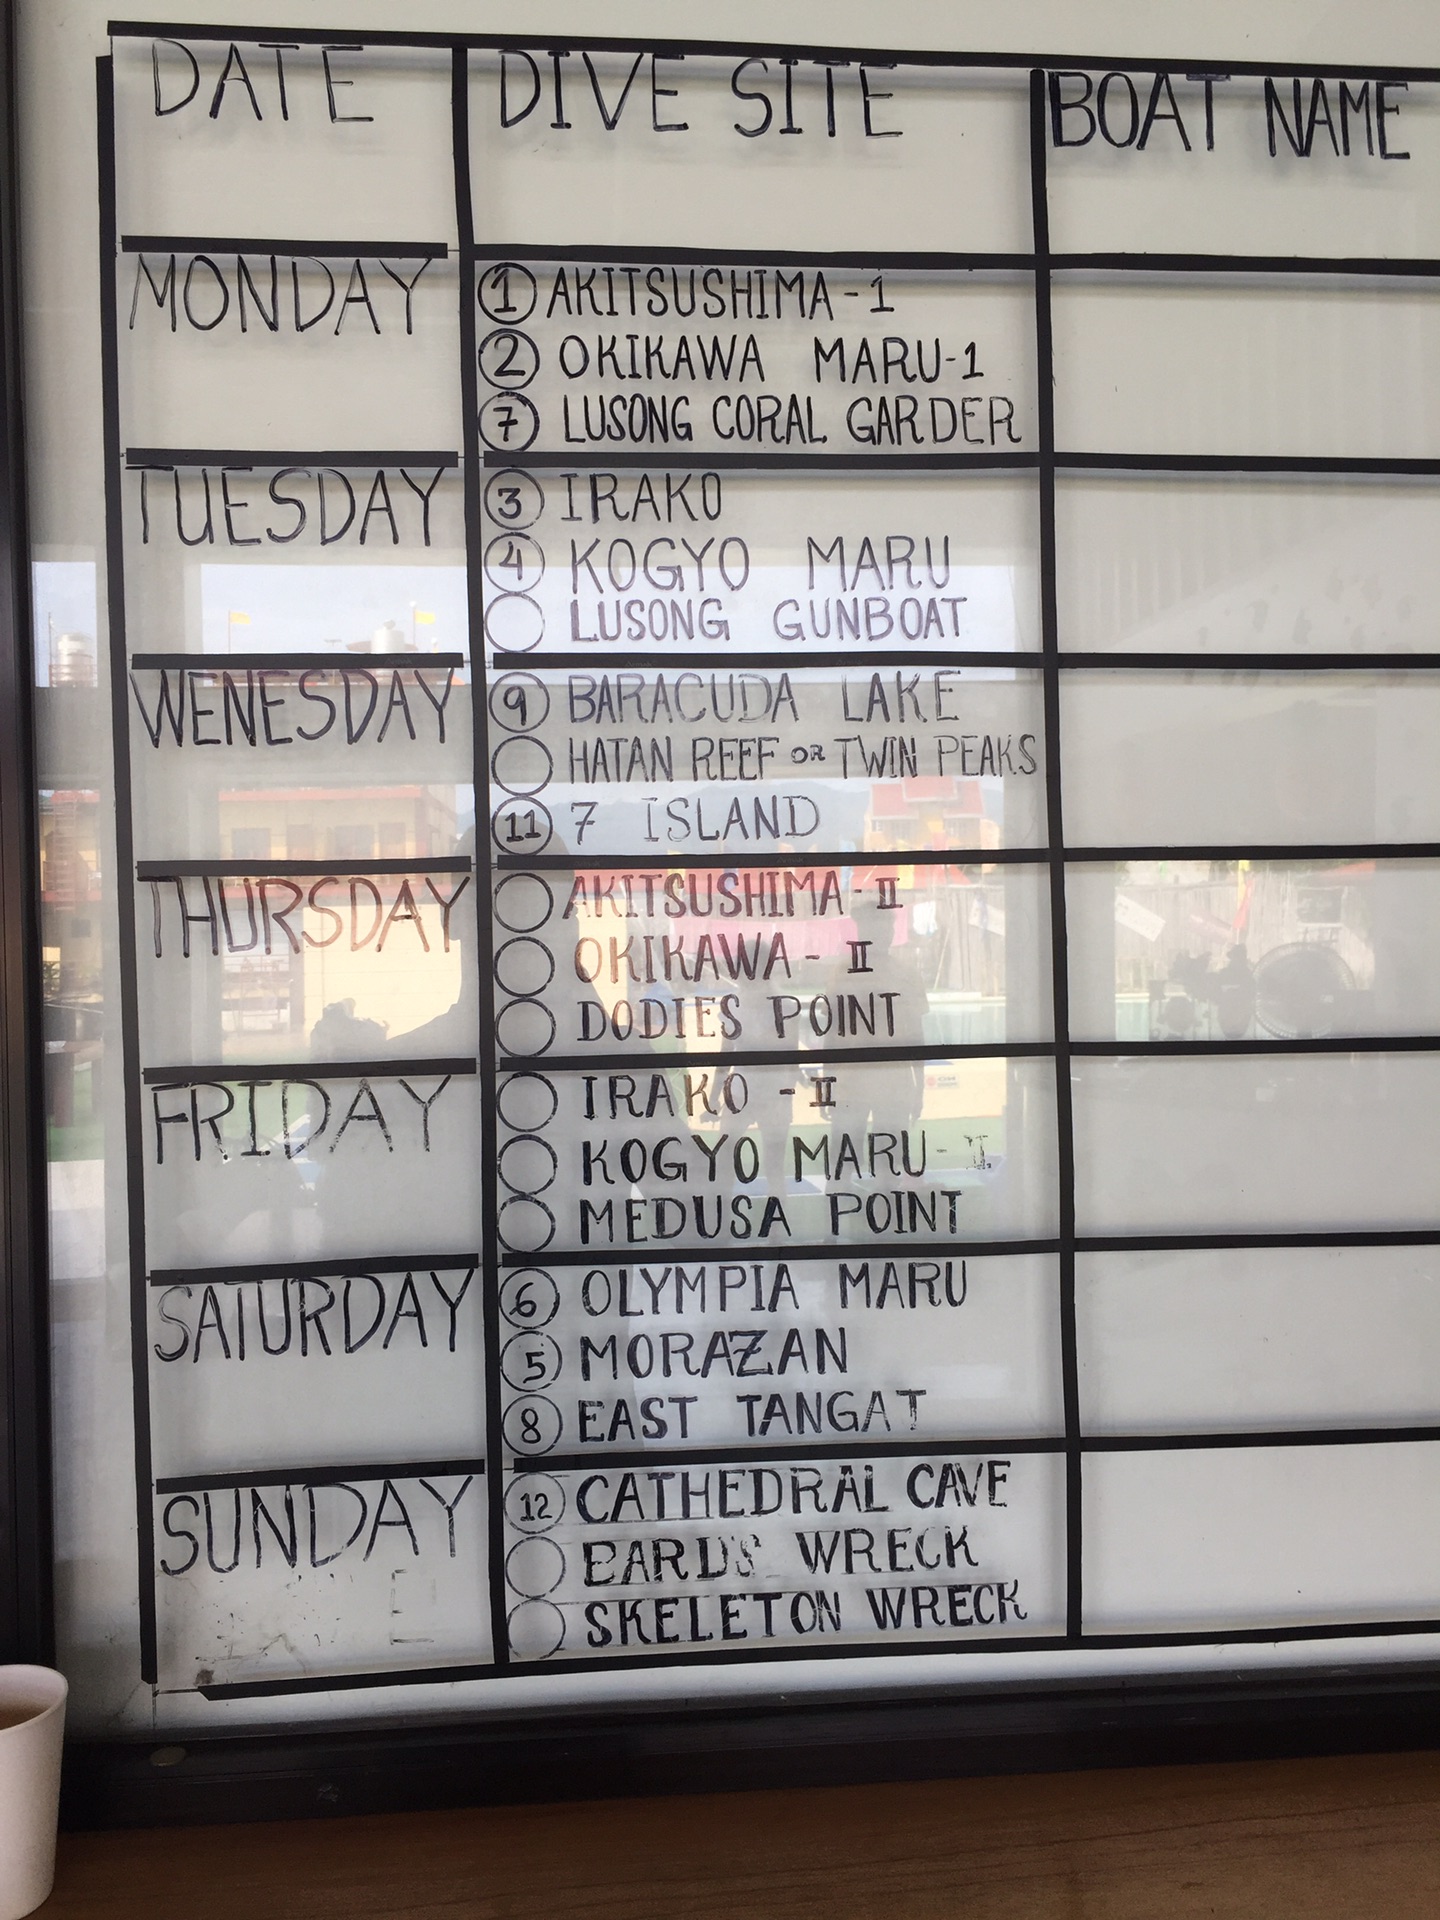 DATE DIVE SITE BOAT NAME
MONDAY
1 AKITSUSHIMA - 1
2 OKIKAWA MARU-1
7 LUSONG CORAL GARDER
TUESDAY
3 IRAKO
4 KOGYO MARU
LUSONG GUNBOAT
WENESDAY
9 BARACUDA LAKE
HATAN REEF OR TWIN PEAKS
11 7 ISLAND
THURSDAY
AKITSUSHIMA - II
OKIKAWA - II
DODIES POINT
FRIDAY
IRAKO - II
KOGYO MARU - II
MEDUSA POINT
SATURDAY
6 OLYMPIA MARU
5 MORAZAN
8 EAST TANGAT
SUNDAY
12 CATHEDRAL CAVE
WRECK
SKELETON WRECK